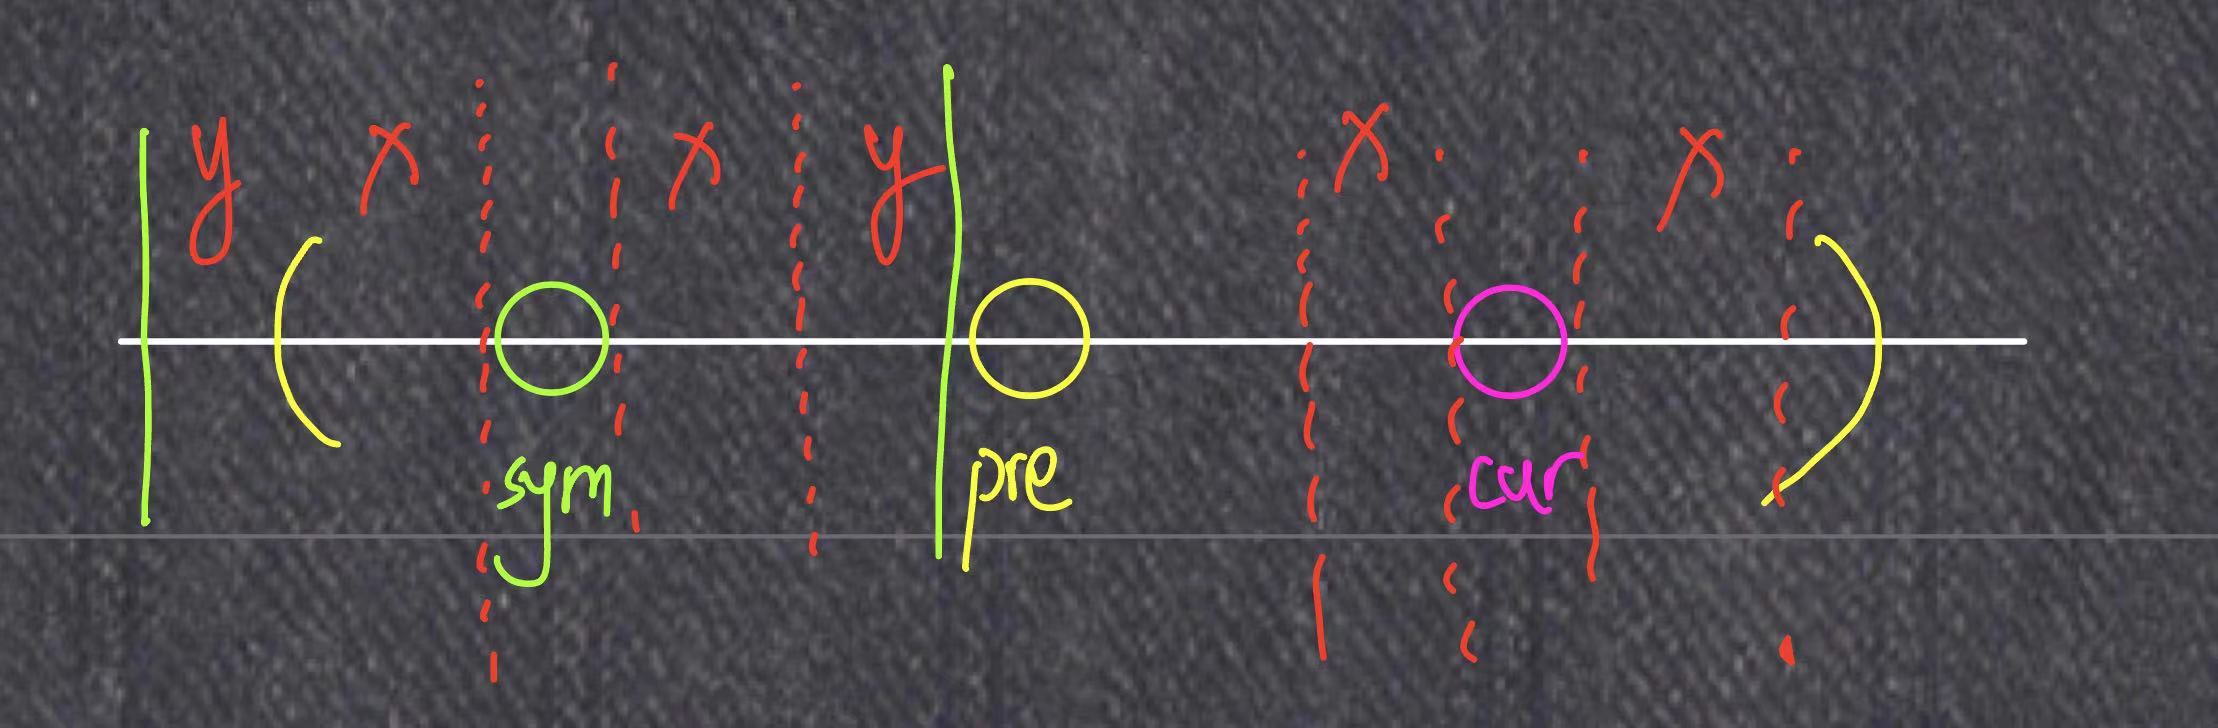 y x x y x x
( )
sym pre cur